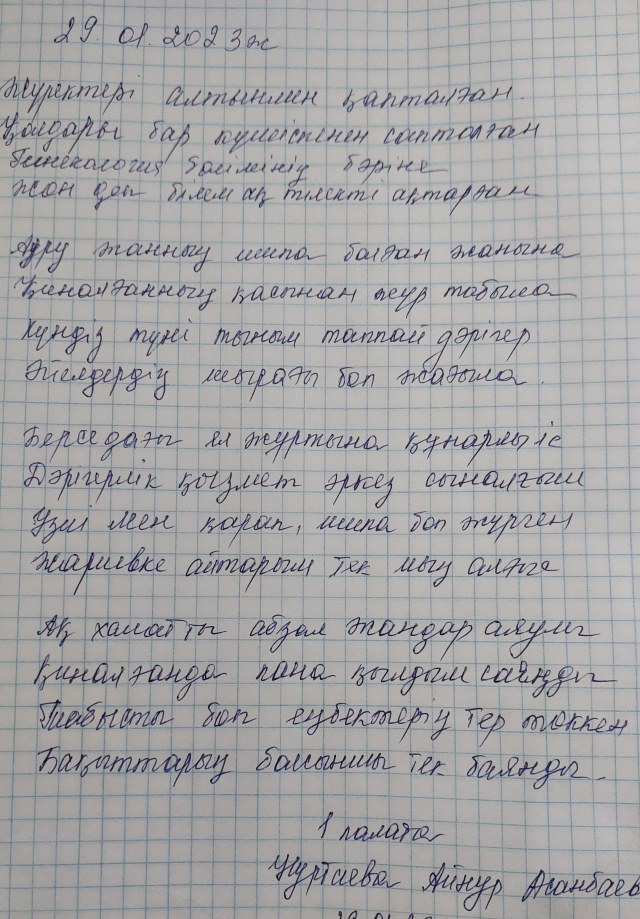 29. 01. 2023ж
Жүректері алтынмен қапталған
Қолдары бар күміспенен сапталған
Гинекология бөлімінің бәріне
Жон деп білем ақ тілекті ақтарған
Ауру жанның шипа болған жанына
Қиналғанның қасынан жүр табыла
Күндіз түні тыным таппай дәрігер
Әйелдердің шырағы боп жағыла.
Берседағы ел жұртына құнарлы іс
Дәрігерлік қызмет әркез сыналғыш
Үзиі мен қарап, шипа боп жүрген
Жариевке айтарым тек мың алғыс
Ақ халатты абзал жандар аяулы
Қиналғанда пана қылдым саяңды
Табысты боп еңбектерің тер төккен
Бақыттарың болсыншы тек баянды.
1 палата
Нуртаева Айнур Асанбаев